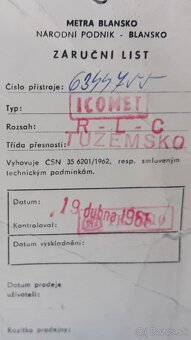 METRA BLANSKO
NÁRODNÍ PODNIK - BLANSKO
ZÁRUČNÍ LIST
Číslo přístroje:
Typ: ICOMET
Rozsah: R-L-C
Třída přesnosti: TUZEMSKO
Vyhovuje ČSN 35 6201/1962, resp. smluveným
technickým podmínkám.
Datum: 19. dubna
Kontroloval:
Datum vyskladnění:
Datum prodeje
uživateli:
Razítko prodejny: